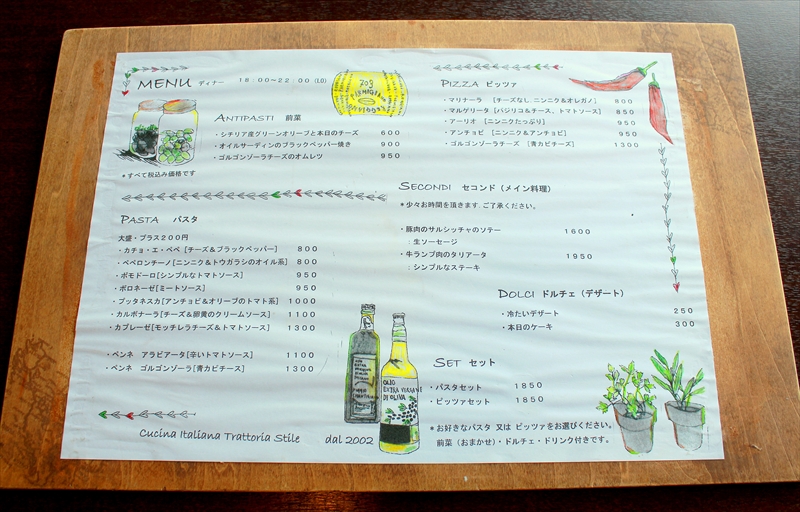 MENU ディナー 18:00~22:00(LO)
ANTIPASTI 前菜
・シチリア産グリーンオリーブと本日のチーズ 600
・オイルサーディンのブラックペッパー焼き 900
・ゴルゴンゾーラチーズのオムレツ 950
*すべて税込み価格です
PASTA パスタ
大盛・プラス200円
・カチョ・エ・ペペ [チーズ&ブラックペッパー] 800
・ペペロンチーノ[ニンニク&トウガラシのオイル系] 800
・ポモドーロ[シンプルなトマトソース] 950
・ボロネーゼ[ミートソース] 950
・プッタネスカ[アンチョビ&オリーブのトマト系] 1000
・カルボナーラ[チーズ&卵黄のクリームソース] 1100
・カプレーゼ[モッチレラチーズ&トマトソース] 1300
・ペンネ アラビアータ[辛いトマトソース] 1100
・ペンネ ゴルゴンゾーラ[青カビチース] 1300
Cucina Italiana Trattoria Stile dal 2002
PIZZA ピッツァ
・マリナーラ [チーズなし、ニンニク&オレガノ] 800
・マルゲリータ [バジリコ&チース、トマトソース] 850
・アーリオ [ニンニクたっぷり] 950
・アンチョビ [ニンニク&アンチョビ] 950
・ゴルゴンゾーラチーズ [青カビチーズ] 1300
SECONDI セコンド(メイン料理)
*少々お時間を頂きます.ご了承ください。
・豚肉のサルシッチャのソテー 1600
:生ソーセージ
・牛ランプ肉のタリアータ 1950
:シンプルなステーキ
DOLCI ドルチェ(デザート)
・冷たいデザート 250
・本日のケーキ 300
SET セット
・パスタセット 1850
・ピッツァセット 1850
*お好きなパスタ 又は ピッツァをお選びください。
前菜(おまかせ)・ドルチェ・ドリンク付きです。
OLIO
EXTRA VERGINE
DI OLIVA